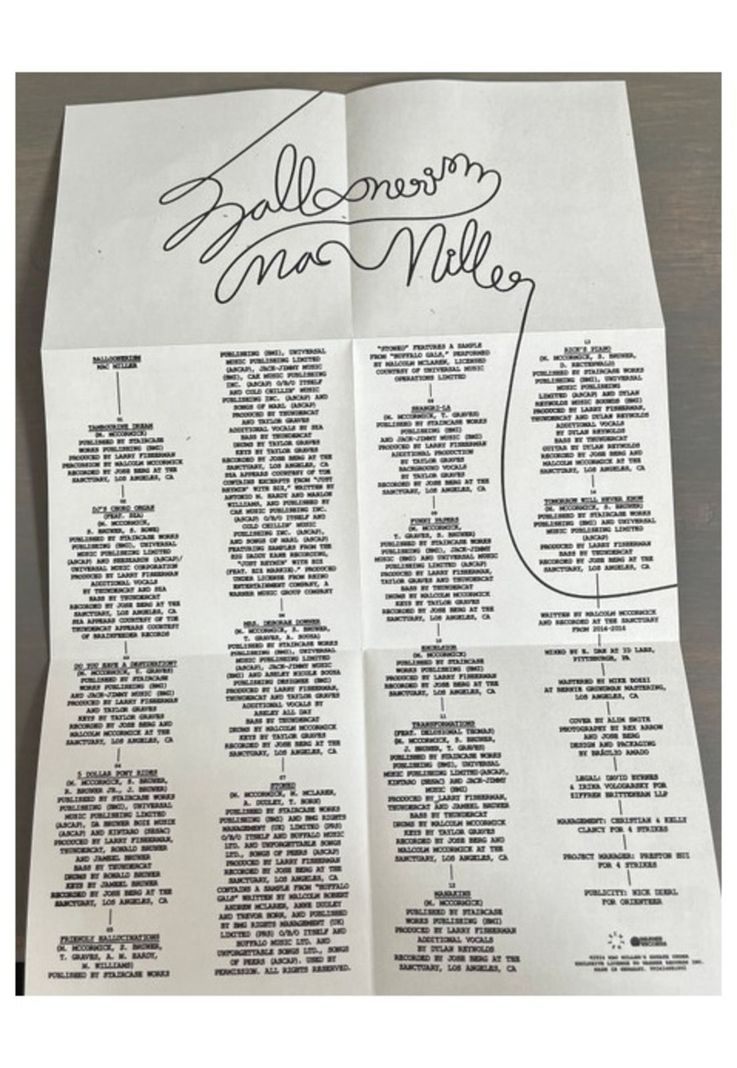 Balloonerism
Mac Miller
BALLOONERISM
MAC MILLER
01
TAMBOURINE DREAM
(M. MCCORMICK)
PUBLISHED BY STAIRCASE
WORKS PUBLISHING (BMI)
PRODUCED BY LARRY FISHERMAN
PERCUSSION BY MALCOLM MCCORMICK
RECORDED BY JOSH BERG AT THE
SANCTUARY, LOS ANGELES, CA
02
DJ'S CHORD ORGAN
(FEAT. SZA)
(M. MCCORMICK,
S. BRUNER, S. ROWE)
PUBLISHED BY STAIRCASE WORKS
PUBLISHING (BMI), UNIVERSAL
MUSIC PUBLISHING LIMITED
(ASCAP) AND
UNIVERSAL MUSIC CORPORATION
PRODUCED BY LARRY FISHERMAN
ADDITIONAL VOCALS
BY THUNDERCAT AND SZA
BASS BY THUNDERCAT
RECORDED BY JOSH BERG AT THE
SANCTUARY, LOS ANGELES, CA
SZA APPEARS COURTESY OF TDE
THUNDERCAT APPEARS COURTESY
OF BRAINFEEDER RECORDS
03
DO YOU HAVE A DESTINATION?
(M. MCCORMICK, T. GRAVES)
PUBLISHED BY STAIRCASE
WORKS PUBLISHING (BMI)
AND JACK-JIMMY MUSIC (BMI)
PRODUCED BY LARRY FISHERMAN
AND TAYLOR GRAVES
KEYS BY TAYLOR GRAVES
RECORDED BY JOSH BERG AND
MALCOLM MCCORMICK AT THE
SANCTUARY, LOS ANGELES, CA
04
5 DOLLAR PONY RIDES
(M. MCCORMICK, S. BRUNER,
R. BRUNER JR., J. BRUNER)
PUBLISHED BY STAIRCASE WORKS
PUBLISHING (BMI), UNIVERSAL
MUSIC PUBLISHING LIMITED
(ASCAP), DA BRUNER BOIZ MUSIK
(ASCAP) AND KINTARO (SESAC)
PRODUCED BY LARRY FISHERMAN,
THUNDERCAT, RONALD BRUNER
AND JAMEEL BRUNER
BASS BY THUNDERCAT
DRUMS BY RONALD BRUNER
KEYS BY JAMEEL BRUNER
RECORDED BY JOSH BERG AT THE
SANCTUARY, LOS ANGELES, CA
05
FRIENDLY HALLUCINATIONS
(M. MCCORMICK, S. BRUNER,
T. GRAVES, A. M. HARDY,
M. WILLIAMS)
PUBLISHED BY STAIRCASE WORKS
PUBLISHING (BMI), UNIVERSAL
MUSIC PUBLISHING LIMITED
(ASCAP), JACK-JIMMY MUSIC
(BMI), CAK MUSIC PUBLISHING
INC. (ASCAP) O/B/O ITSELF
AND COLD CHILLIN' MUSIC
PUBLISHING INC. (ASCAP) AND
SONGS OF MARL (ASCAP)
PRODUCED BY THUNDERCAT
AND TAYLOR GRAVES
ADDITIONAL VOCALS BY SZA
BASS BY THUNDERCAT
DRUMS BY TAYLOR GRAVES
KEYS BY TAYLOR GRAVES
RECORDED BY JOSH BERG AT THE
SANCTUARY, LOS ANGELES, CA
SZA APPEARS COURTESY OF TDE
CONTAINS EXCERPTS FROM "JUST
RHYMIN' WITH BIZ," WRITTEN BY
ANTONIO M. HARDY AND MARLON
WILLIAMS, AND PUBLISHED BY
CAK MUSIC PUBLISHING INC.
(ASCAP) O/B/O ITSELF AND
COLD CHILLIN' MUSIC
PUBLISHING INC. (ASCAP),
AND SONGS OF MARL (ASCAP)
FEATURING SAMPLES FROM THE
BIG DADDY KANE RECORDING,
"JUST RHYMIN' WITH BIZ
(FEAT. BIZ MARKIE)." PRODUCED
UNDER LICENSE FROM RHINO
ENTERTAINMENT COMPANY, A
WARNER MUSIC GROUP COMPANY
06
MRS. DEBORAH DOWNER
(M. MCCORMICK, S. BRUNER,
T. GRAVES, A. SOUSA)
PUBLISHED BY STAIRCASE WORKS
PUBLISHING (BMI), UNIVERSAL
MUSIC PUBLISHING LIMITED
(ASCAP), JACK-JIMMY MUSIC
(BMI) AND ASHLEY NICOLE SOUSA
PUBLISHING DESIGNEE (BMI)
PRODUCED BY LARRY FISHERMAN,
THUNDERCAT AND TAYLOR GRAVES
ADDITIONAL VOCALS BY
ASHLEY ALL DAY
BASS BY THUNDERCAT
DRUMS BY MALCOLM MCCORMICK
KEYS BY TAYLOR GRAVES
RECORDED BY JOSH BERG AT THE
SANCTUARY, LOS ANGELES, CA
07
STONED
(M. MCCORMICK, M. MCLAREN,
A. DUDLEY, T. HORN)
PUBLISHED BY STAIRCASE WORKS
PUBLISHING (BMI) AND BMG RIGHTS
MANAGEMENT (UK) LIMITED (PRS)
O/B/O ITSELF AND BUFFALO MUSIC
LTD. AND UNFORGETTABLE SONGS
LTD., SONGS OF PEERS (ASCAP)
PRODUCED BY LARRY FISHERMAN
RECORDED BY JOSH BERG AT THE
SANCTUARY, LOS ANGELES, CA
CONTAINS A SAMPLE FROM "BUFFALO
GALS" WRITTEN BY MALCOLM ROBERT
ANDREW MCLAREN, ANNE DUDLEY
AND TREVOR HORN, AND PUBLISHED
BY BMG RIGHTS MANAGEMENT (UK)
LIMITED (PRS) O/B/O ITSELF AND
BUFFALO MUSIC LTD. AND
UNFORGETTABLE SONGS LTD., SONGS
OF PEERS (ASCAP). USED BY
PERMISSION. ALL RIGHTS RESERVED.
"STONED" FEATURES A SAMPLE
FROM "BUFFALO GALS," PERFORMED
BY MALCOLM MCLAREN, LICENSED
COURTESY OF UNIVERSAL MUSIC
OPERATIONS LIMITED
08
SHANGRI-LA
(M. MCCORMICK, T. GRAVES)
PUBLISHED BY STAIRCASE WORKS
PUBLISHING (BMI)
AND JACK-JIMMY MUSIC (BMI)
PRODUCED BY THUNDERCAT
ADDITIONAL PRODUCTION
BY TAYLOR GRAVES
BACKGROUND VOCALS
BY TAYLOR GRAVES
RECORDED BY JOSH BERG AT THE
SANCTUARY, LOS ANGELES, CA
09
FUNNY PAPERS
(M. MCCORMICK,
T. GRAVES, S. BRUNER)
PUBLISHED BY STAIRCASE WORKS
PUBLISHING (BMI), JACK-JIMMY
MUSIC (BMI) AND UNIVERSAL
MUSIC PUBLISHING LIMITED (ASCAP)
PRODUCED BY LARRY FISHERMAN,
TAYLOR GRAVES AND THUNDERCAT
BASS BY THUNDERCAT
DRUMS BY MALCOLM MCCORMICK
KEYS BY TAYLOR GRAVES
RECORDED BY JOSH BERG AT THE
SANCTUARY, LOS ANGELES, CA
10
EXCELSIOR
(M. MCCORMICK)
PUBLISHED BY STAIRCASE
WORKS PUBLISHING (BMI)
PRODUCED BY LARRY FISHERMAN
RECORDED BY JOSH BERG AT THE
SANCTUARY, LOS ANGELES, CA
11
TRANSFORMATIONS
(FEAT. DELUSIONAL THOMAS)
(M. MCCORMICK, S. BRUNER,
J. BRUNER, T. GRAVES)
PUBLISHED BY STAIRCASE WORKS
PUBLISHING (BMI), UNIVERSAL
MUSIC PUBLISHING LIMITED(ASCAP),
KINTARO (SESAC) AND JACK-JIMMY
MUSIC (BMI)
PRODUCED BY LARRY FISHERMAN,
THUNDERCAT AND JAMEEL BRUNER
BASS BY THUNDERCAT
DRUMS BY MALCOLM MCCORMICK
KEYS BY TAYLOR GRAVES
RECORDED BY JOSH BERG AND
MALCOLM MCCORMICK AT THE
SANCTUARY, LOS ANGELES, CA
12
MANAKINS
(M. MCCORMICK)
PUBLISHED BY STAIRCASE
WORKS PUBLISHING (BMI)
PRODUCED BY LARRY FISHERMAN
ADDITIONAL VOCALS
BY DYLAN REYNOLDS
RECORDED BY JOSH BERG AT THE
SANCTUARY, LOS ANGELES, CA
13
RICK'S PIANO
(M. MCCORMICK, S. BRUNER,
D. RECTENWALD)
PUBLISHED BY STAIRCASE WORKS
PUBLISHING (BMI), UNIVERSAL
MUSIC PUBLISHING
LIMITED (ASCAP) AND DYLAN
REYNOLDS MUSIC SOUNDS (BMI)
PRODUCED BY LARRY FISHERMAN,
THUNDERCAT AND DYLAN REYNOLDS
ADDITIONAL VOCALS
BY DYLAN REYNOLDS
BASS BY THUNDERCAT
GUITAR BY DYLAN REYNOLDS
RECORDED BY JOSH BERG AND
MALCOLM MCCORMICK AT THE
SANCTUARY, LOS ANGELES, CA
14
TOMORROW WILL NEVER KNOW
(M. MCCORMICK, S. BRUNER)
PUBLISHED BY STAIRCASE WORKS
PUBLISHING (BMI) AND UNIVERSAL
MUSIC PUBLISHING LIMITED
(ASCAP)
PRODUCED BY LARRY FISHERMAN
BASS BY THUNDERCAT
RECORDED BY JOSH BERG AT THE
SANCTUARY, LOS ANGELES, CA
WRITTEN BY MALCOLM MCCORMICK
AND RECORDED AT THE SANCTUARY
FROM 2014-2014
MIXED BY E. DAN AT ID LABS,
PITTSBURGH, PA
MASTERED BY MIKE BOZZI
AT BERNIE GRUNDMAN MASTERING,
LOS ANGELES, CA
COVER BY ALIM SMITH
PHOTOGRAPHY BY REX ARROW
AND JOSH BERG
DESIGN AND PACKAGING
BY BRÁULIO AMADO
LEGAL: DAVID BYRNES
& IRINA VOLODARSKY FOR
ZIFFREN BRITTENHAM LLP
MANAGEMENT: CHRISTIAN & KELLY
CLANCY FOR 4 STRIKES
PROJECT MANAGER: PRESTON
FOR 4 STRIKES
PUBLICITY: NICK DIERL
FOR ORIENTEER
WARNER
RECORDS
MAC MILLER'S ESTATE UNDER
EXCLUSIVE LICENSE TO WARNER RECORDS INC.
MADE IN GERMANY.